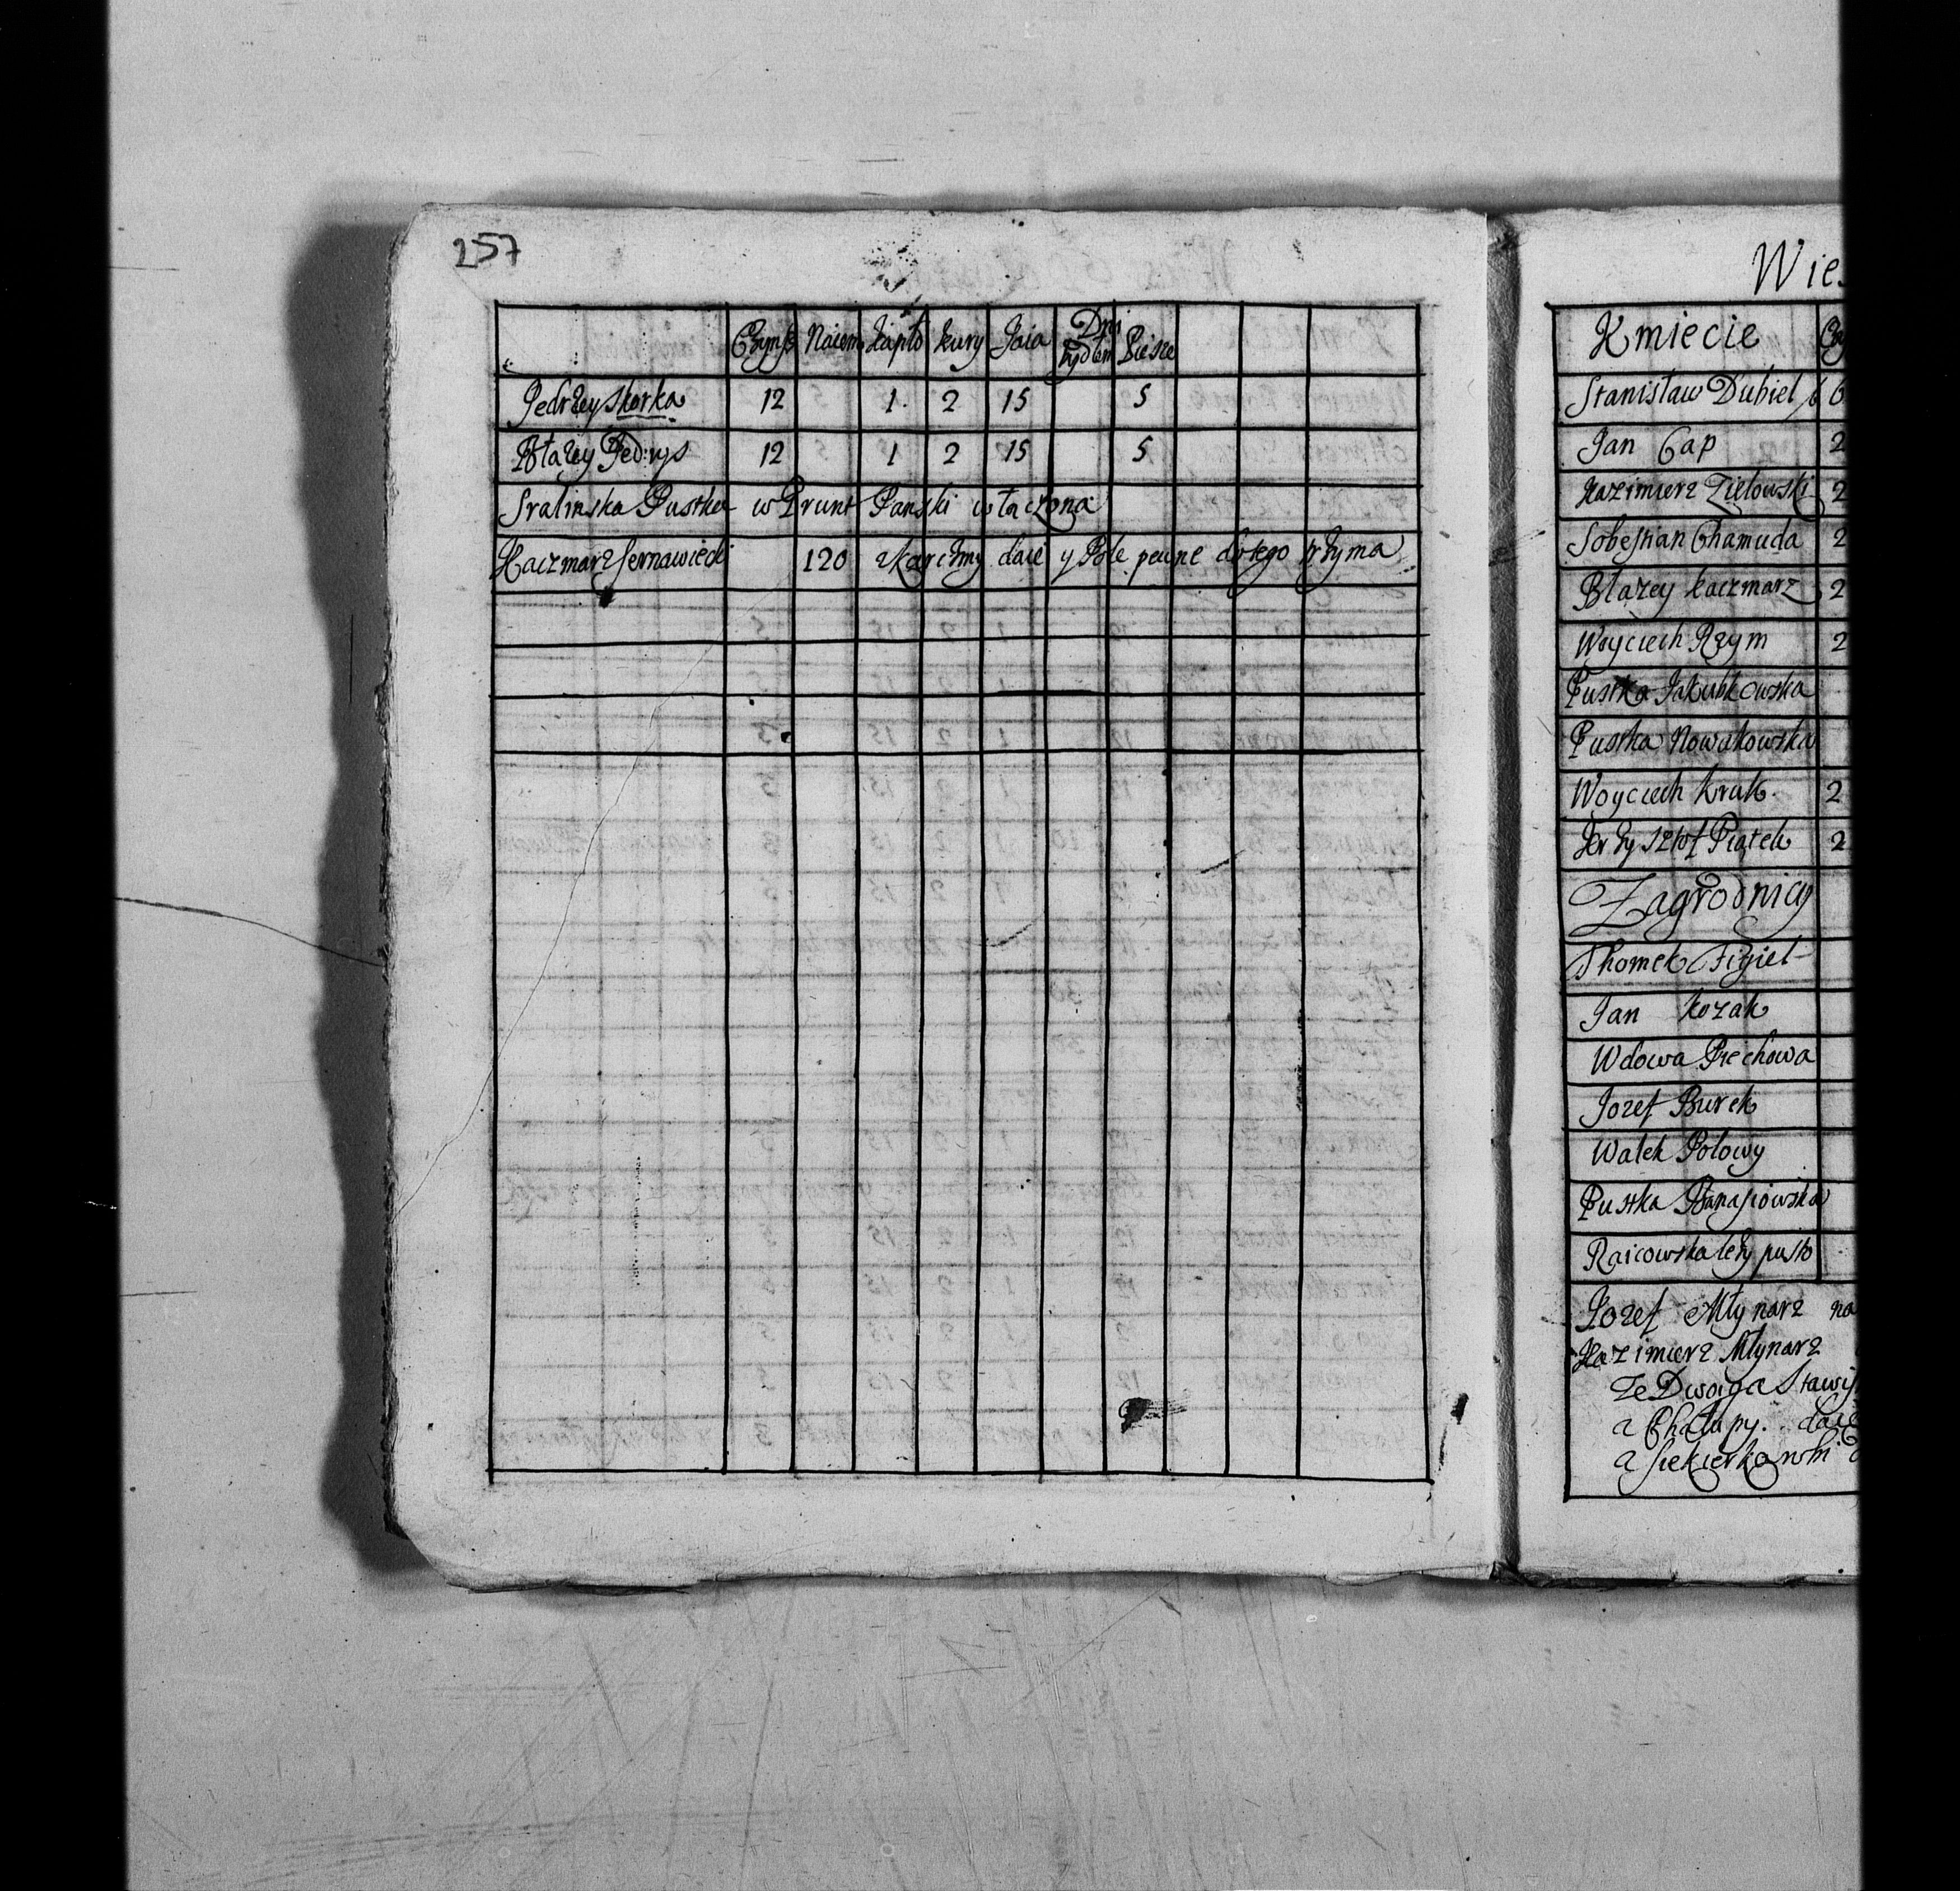 257
Czynsz Naiem Kapło kury Jaia Dni Tydłem Piesze
Jedrzey Skorka 12 1 2 15 5
Błazey Jedrys 12 1 2 15 5
Sralinska Pustka w Grunt Panski włączona
Kaczmarz Sernawiecki 120 z karczmy daie y Pole pewne do tego trzyma
Wies
Kmiecie
Stanisław Dubiel 6
Jan Gap 2
Kazimierz Zielowski 2
Sobestian Chamuda 2
Błazey kaczmarz 2
Woyciech Rzym 2
Pustka Jakubkowska
Pustka Nowakowska
Woyciech Kruk 2
Krzysztof Piątek 2
Zagrodnicy
Thomek Figiel
Jan Kozak
Wdowa Piechowa
Jozef Burek
Walek Polowy
Pustka Banasiowska
Raicowska leży pusto
Jozef Młynarz na
Kazimierz Młynarz
ze Dwoyga Stawis
z Chałupy daie
z siekierkami